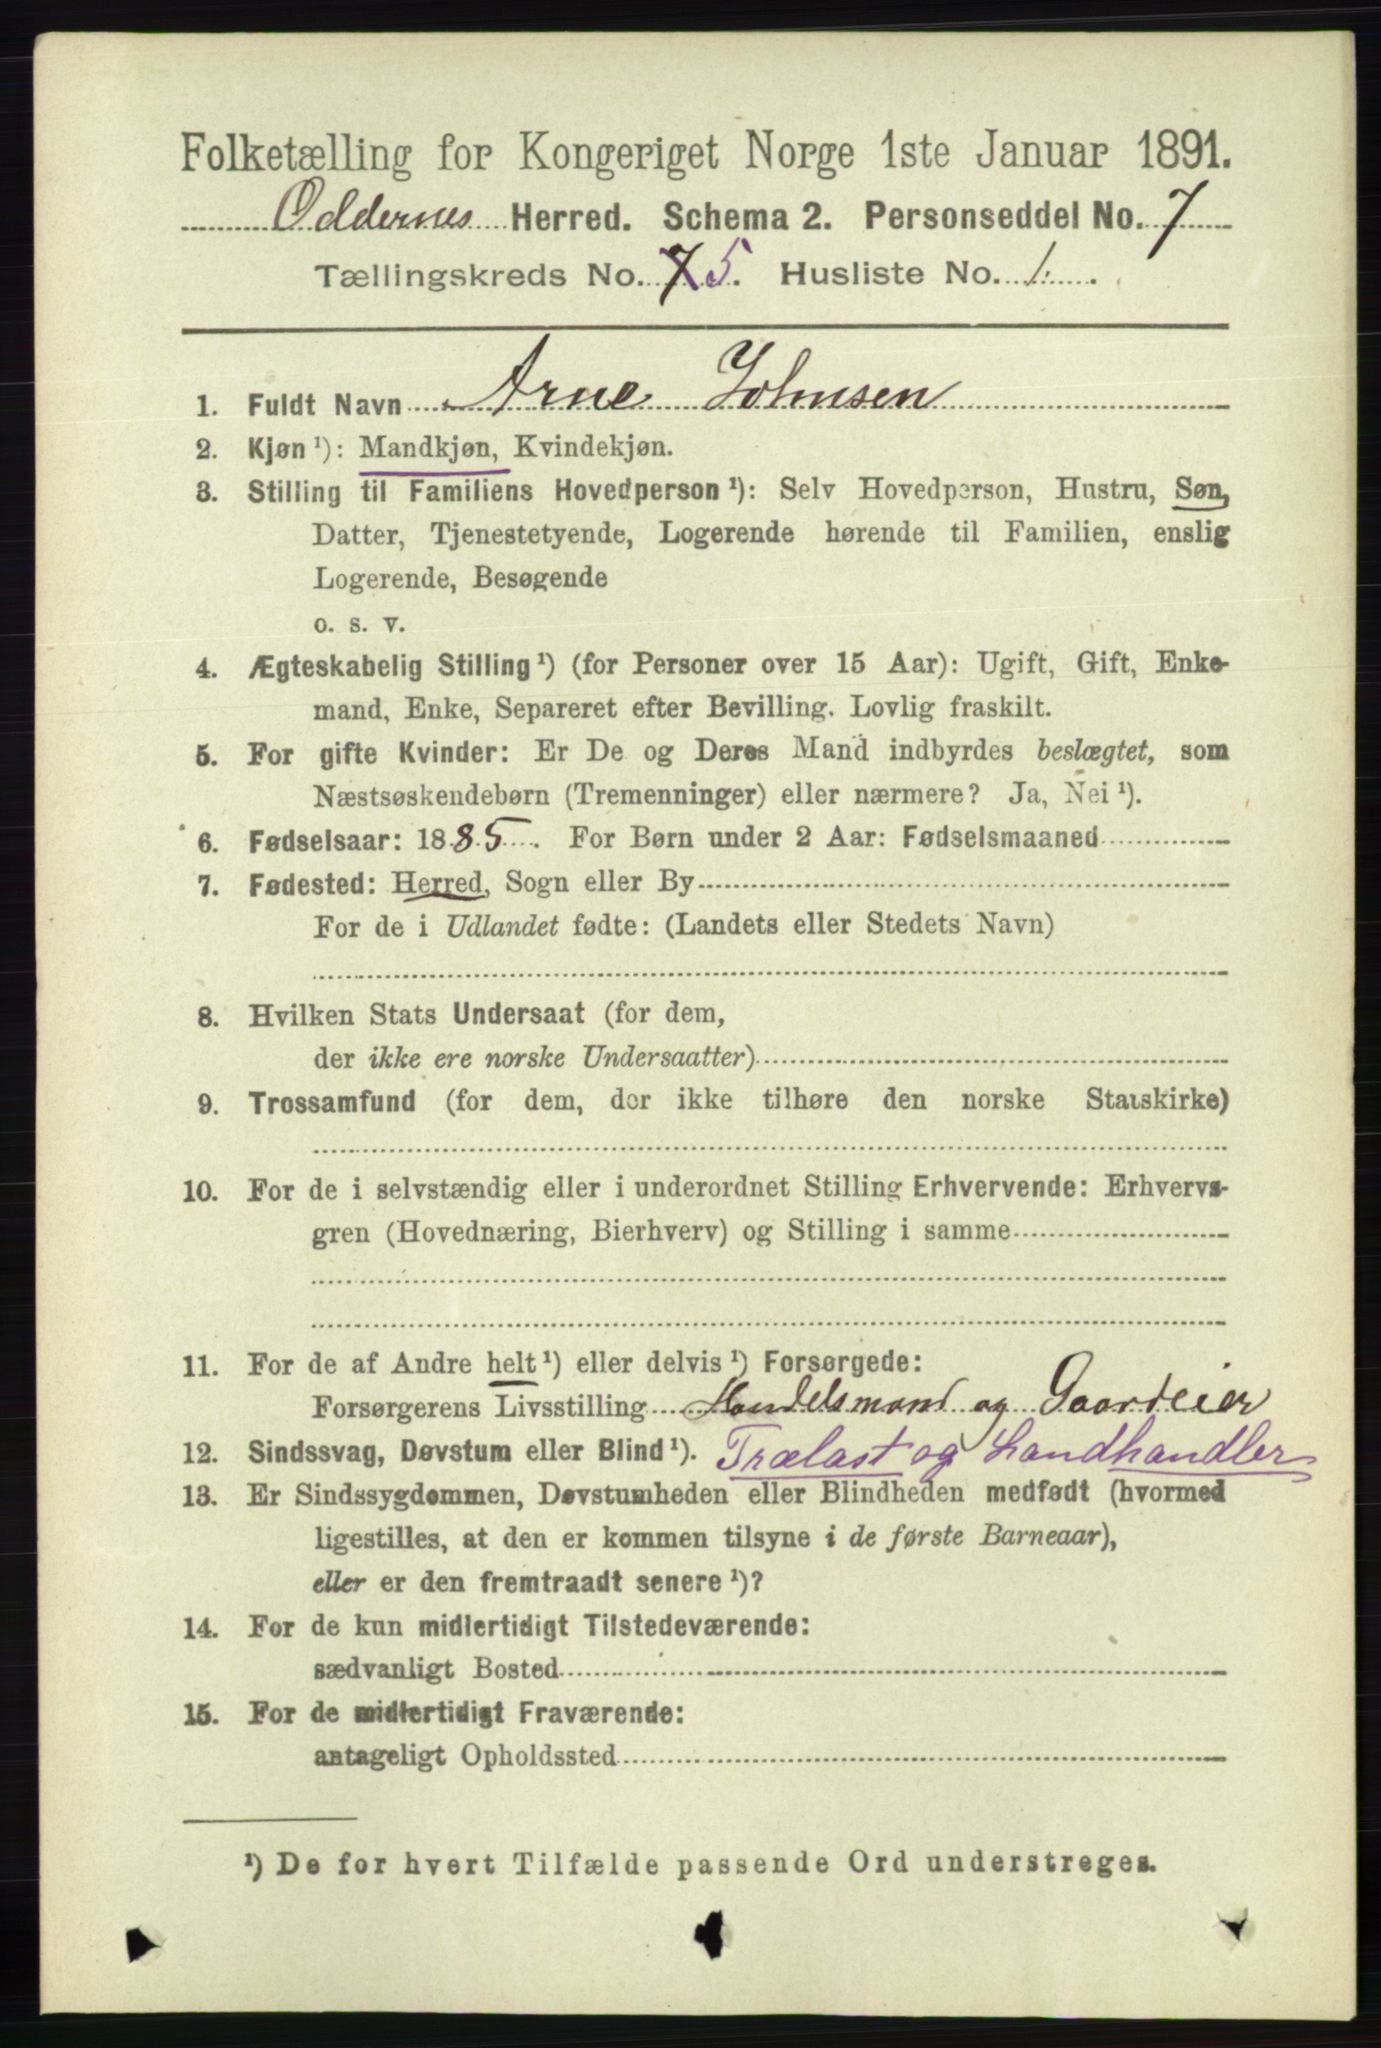 Folketælling for Kongeriget Norge 1ste Januar 1891.
Oddernes Herred. Schema 2. Personseddel No. 7
Tællingskreds No. 7 5. Husliste No. 1.
1. Fuldt Navn Arne Johnsen
2. Kjøn¹): Mandkjøn, Kvindekjøn.
3. Stilling til Familiens Hovedperson¹): Selv Hovedperson, Hustru, Søn,
Datter, Tjenestetyende, Logerende hørende til Familien, enslig
Logerende, Besøgende
o. s. v.
4. Ægteskabelig Stilling¹) (for Personer over 15 Aar): Ugift, Gift, Enke-
mand, Enke, Separeret efter Bevilling. Lovlig fraskilt.
5. For gifte Kvinder: Er De og Deres Mand indbyrdes beslægtet, som
Næstsøskendebørn (Tremenninger) eller nærmere? Ja, Nei¹).
6. Fødselsaar: 1885. For Børn under 2 Aar: Fødselsmaaned
7. Fødested: Herred, Sogn eller By
For de i Udlandet fødte: (Landets eller Stedets Navn)
8. Hvilken Stats Undersaat (for dem,
der ikke ere norske Undersaatter)
9. Trossamfund (for dem, der ikke tilhøre den norske Statskirke)
10. For de i selvstændig eller i underordnet Stilling Erhvervende: Erhvervs-
gren (Hovednæring, Bierhverv) og Stilling i samme
11. For de af Andre helt¹) eller delvis¹) Forsørgede:
Forsørgerens Livsstilling Handelsmand og Gaardeier
12. Sindssvag, Døvstum eller Blind¹). Trælast og Landhandler
13. Er Sindssygdommen, Døvstumheden eller Blindheden medfødt (hvormed
ligestilles, at den er kommen tilsyne i de første Barneaar),
eller er den fremtraadt senere¹)?
14. For de kun midlertidigt Tilstedeværende:
sædvanligt Bosted
15. For de midlertidigt Fraværende:
antageligt Opholdssted
¹) De for hvert Tilfælde passende Ord understreges.